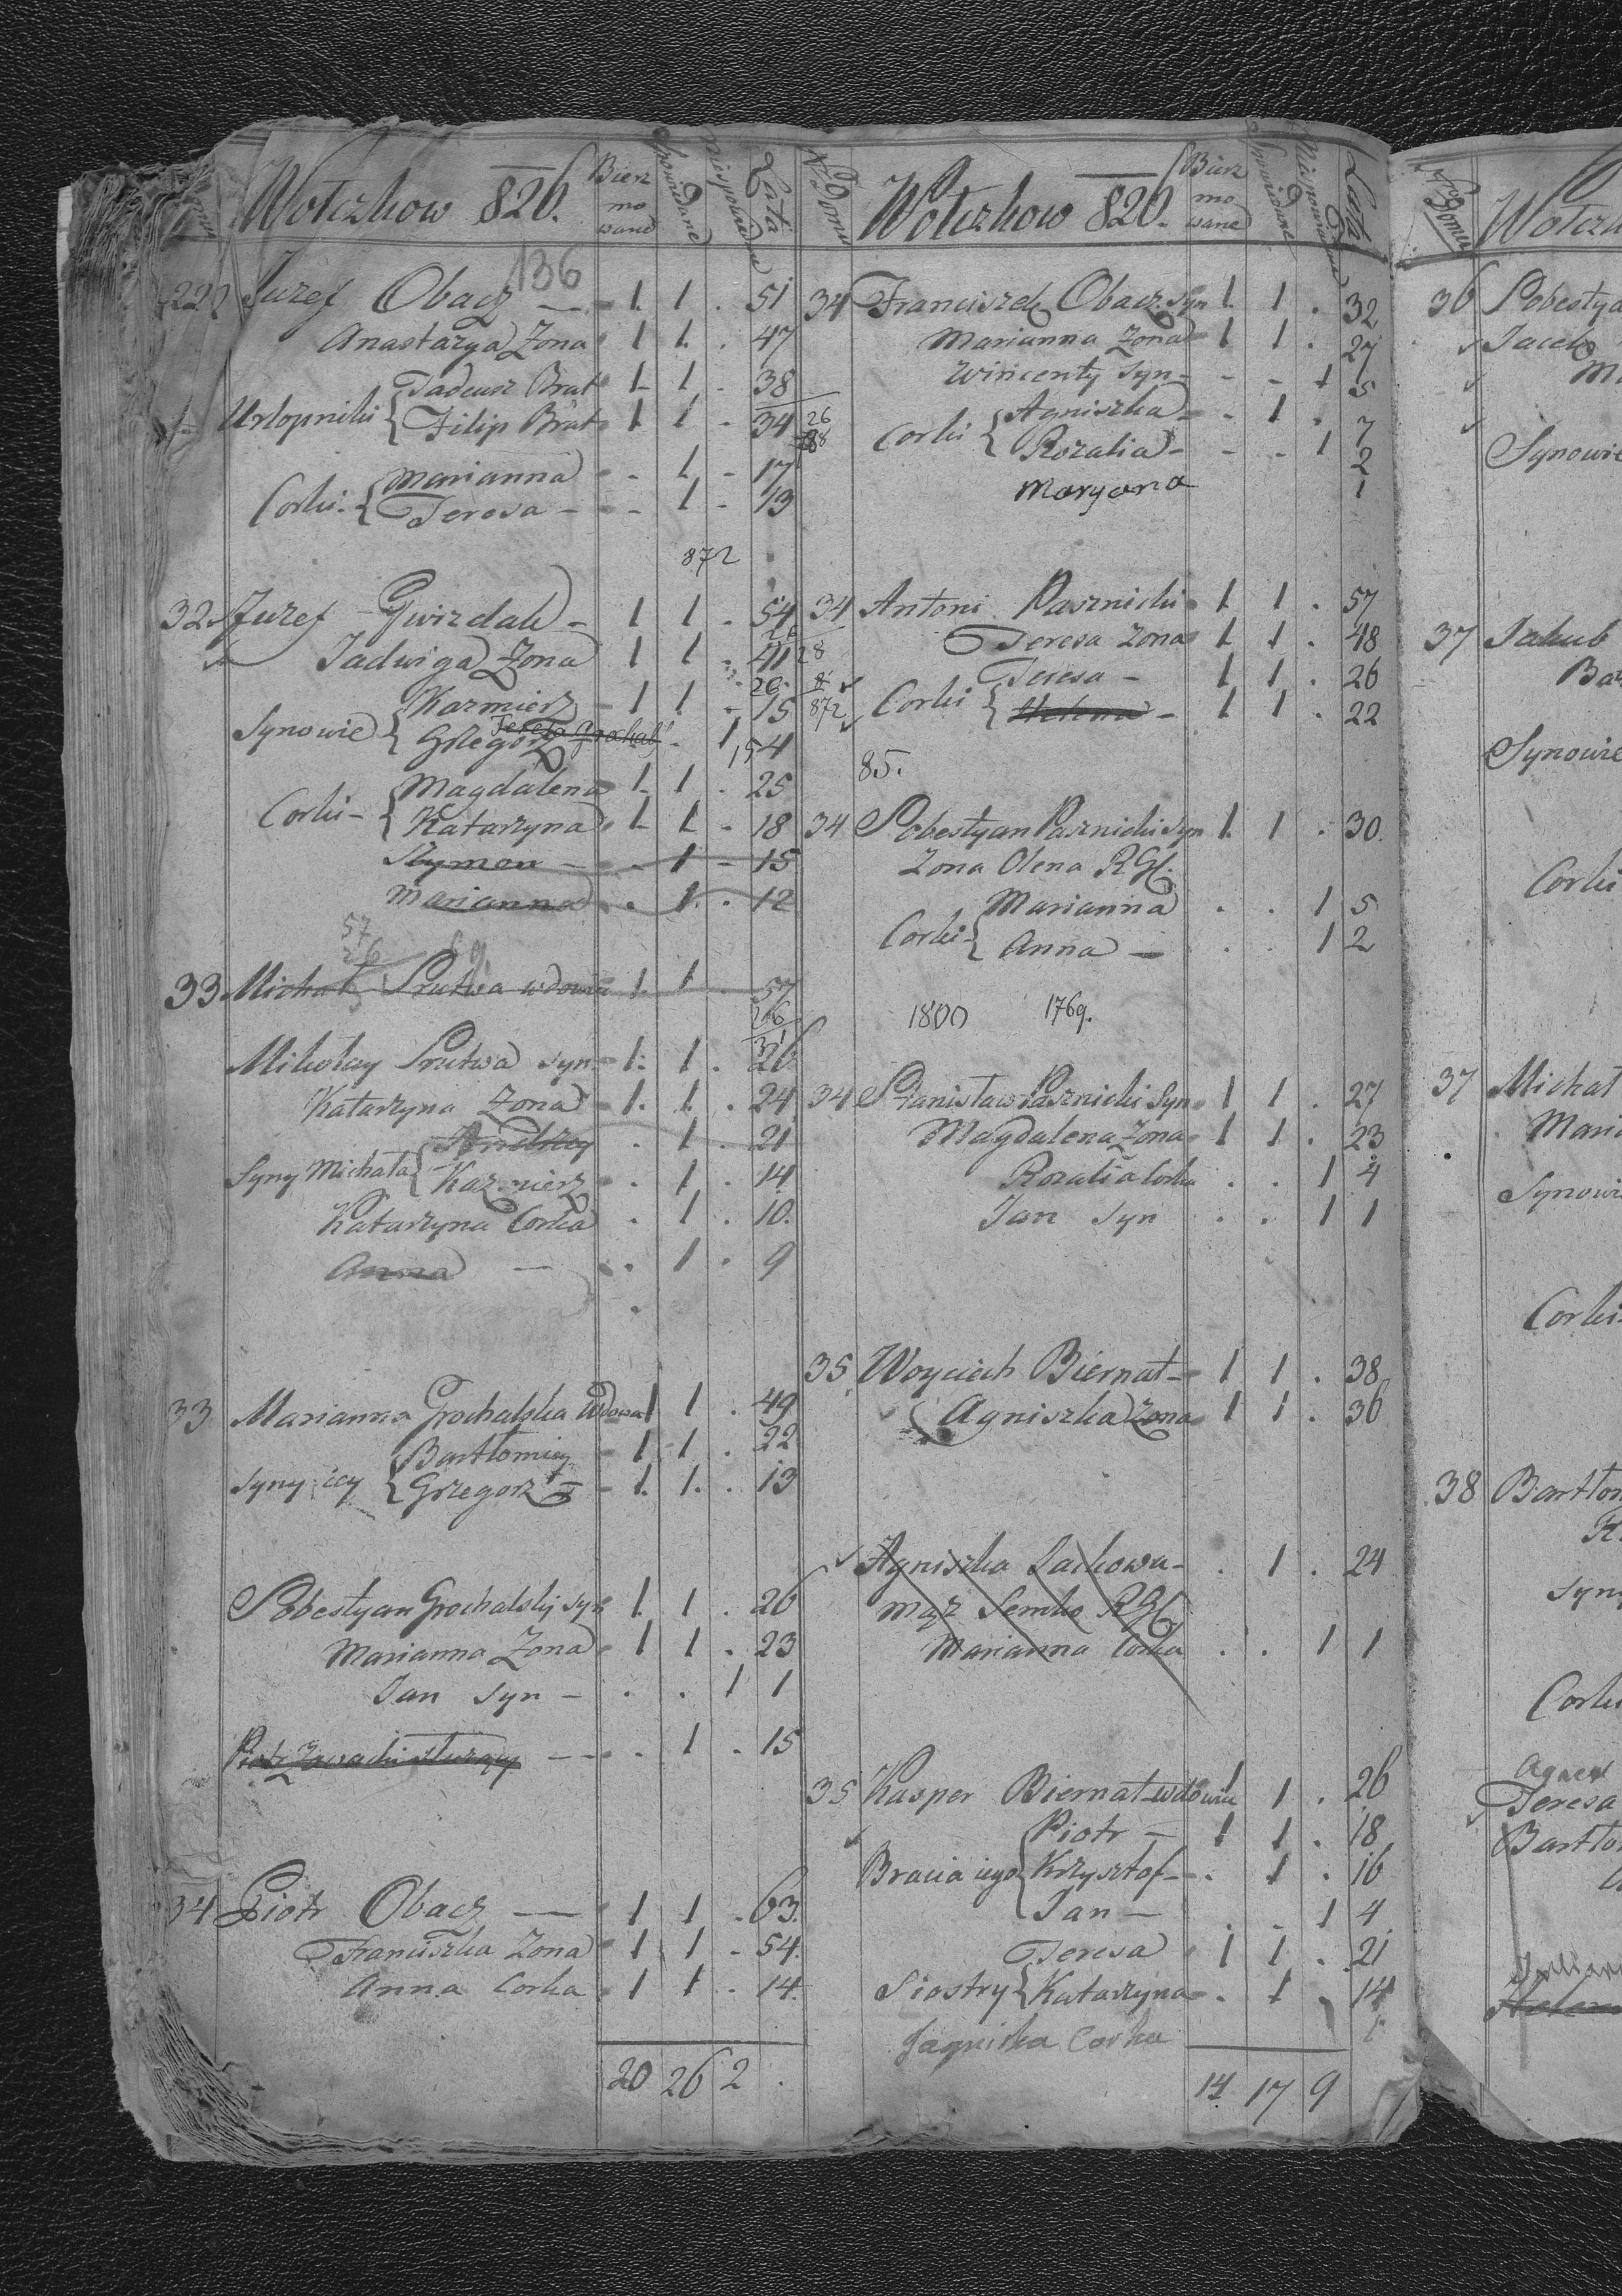 Wołczkow 826.
Bierz
mo
wane
Spowiedane
Lata
136
Juzef Obacz — 1. 1 . 51
Anastazya Zona 1 1. . 47
Tadeusz Brat 1 1 - 38
Urlopniki Filip Brat 1 1 - 34
Marianna . . 1 - 17
Corki. Teresa - - - 1 - 13
872
32 Juzef Gwizdak - 1 1 - 54
Jadwiga Zona 1 1 - 41
Kazmierz 1 1 - 15
Synowie Grzegorz
Magdalena 1. 1 . 25
Corki - Katarzyna 1 1 - 18
Szymon - . 1 - 15
Marianna . 1. . 12
57
26
33 Michał Prutwa wdowiec 1. 1 . 57
26
31
Mikołay Prutwa syn 1. 1 . 26
Katarzyna Zona 1. 1. . 24
Andrzey . 1 . 21
Syny Michała Kazmierz . 1 . 14
Katarzyna Corka . 1 . 10.
Anna — . 1 . 9
33 Marianna Grochalska Wdowa 1 1 . 49
Bartłomiey 1 1 . 22
syny iey Grzegorz - 1. 1. . 13
Sobestyan Grochalskij syn 1. 1 . 26
Marianna Zona 1 1 . 23
Jan syn - . . 1 1
Piotr Zawadzki służący — . 1 . 15
34 Piotr Obacz — 1 1 . 63.
Franciszka Zona 1 1 - 54.
Anna Corka 1 1 . 14.
20 26 2 .
Nro Domu
Wołczkow 826.
Bierz
mo
wane
Spowiedane
Lata
34 Franciszek Obacz Syn 1. 1 . 32
Marianna Zona 1 1 . 27
Wincenty Syn - - - 1 5
Agniszka - - 1 . 7
Corki Rozalia - - - 1 2
Maryana 1
34 Antoni Pasznicki 1 1 . 57
Teresa Zona 1 1 . 48
Teresa - 1 1 . 26
Corki Helena - 1 1 . 22
85.
34 Sobestyan Pasznicki syn 1. 1 . 30.
Zona Olena RGr.
Marianna . . 1 5
Corki - Anna — . . 1 2
1800 1769.
34 Stanisław Pasznicki Syn 1 1 . 27
Magdalena Zona 1 1 . 23
Rozalia Corka . . 1 4
Jan syn . . 1 1
35 Woyciech Biernat - 1 1 . 38
Agniszka Zona 1 1 . 36
Agniszka Lachowa - . 1 . 24
mąz Semko RGr
Marianna Corka . . 1 1
35 Kasper Biernat wdowiec 1 1 . 26
Piotr — 1 1 . 18
Bracia iego Krzysztof - . 1 . 16
Jan — . - 1 4
Teresa 1 1 . 21
Siostry Katarzyna . 1 . 14
Jagniska Corka
14 17 9
Nro Domu
Wołcz
36 Sobestya
Jacek
Synowie
37 Jakub
Ba
Synowie
Corki
37 Michał
Mari
Synowi
Corki
38 Bartłom
Syny
Corki
Teresa
Bartło